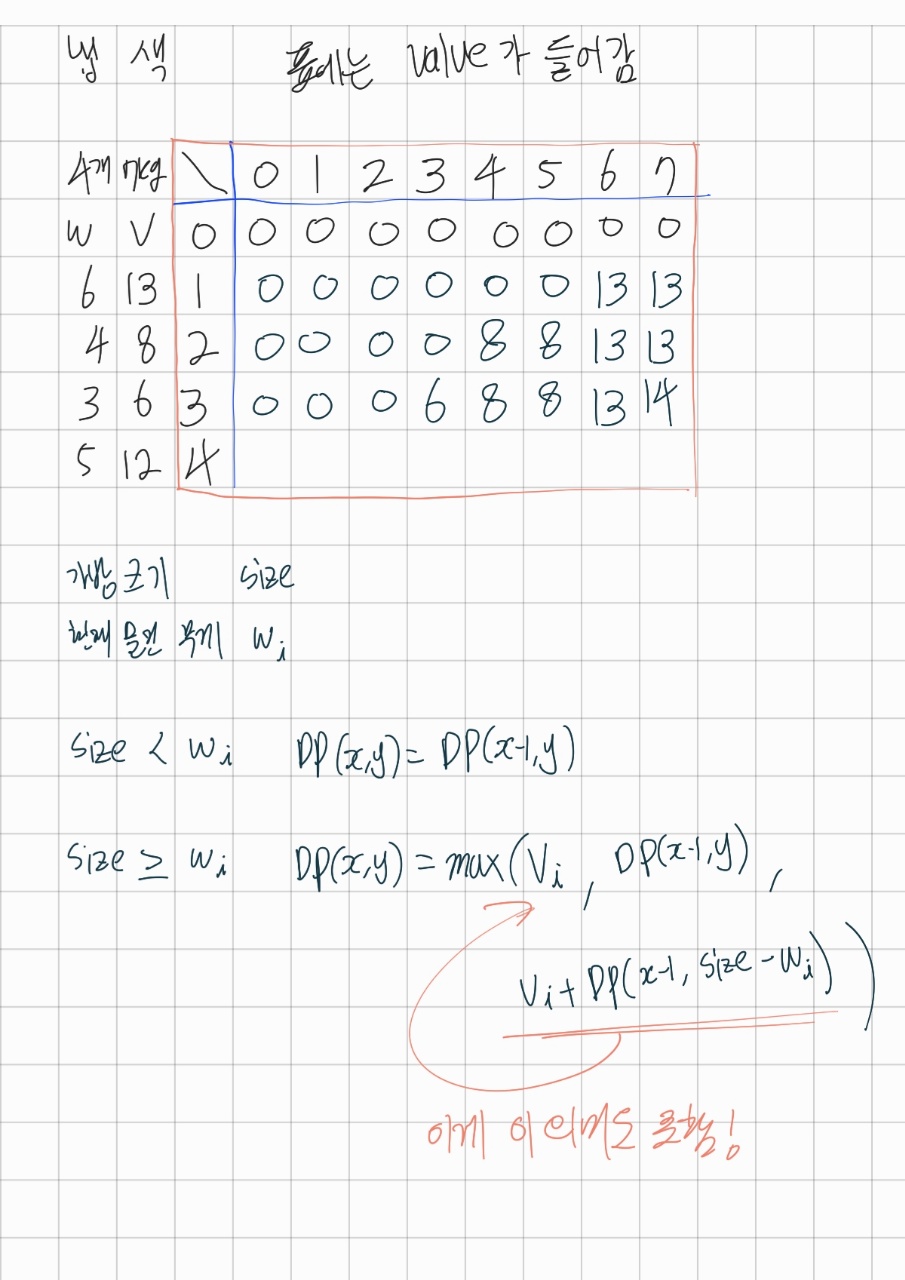 냅 색 표에는 value가 들어감
4개 7kg \ 0 1 2 3 4 5 6 7
W V 0 0 0 0 0 0 0 0 0
6 13 1 0 0 0 0 0 0 13 13
4 8 2 0 0 0 0 8 8 13 13
3 6 3 0 0 0 6 8 8 13 14
5 12 4
가방 크기 size
현재 물건 무게 wᵢ
size < wᵢ DP(x,y) = DP(x-1,y)
size ≥ wᵢ DP(x,y) = max(Vᵢ, DP(x-1,y),
Vᵢ + DP(x-1, size-wᵢ))
이게 이 의미도 포함!